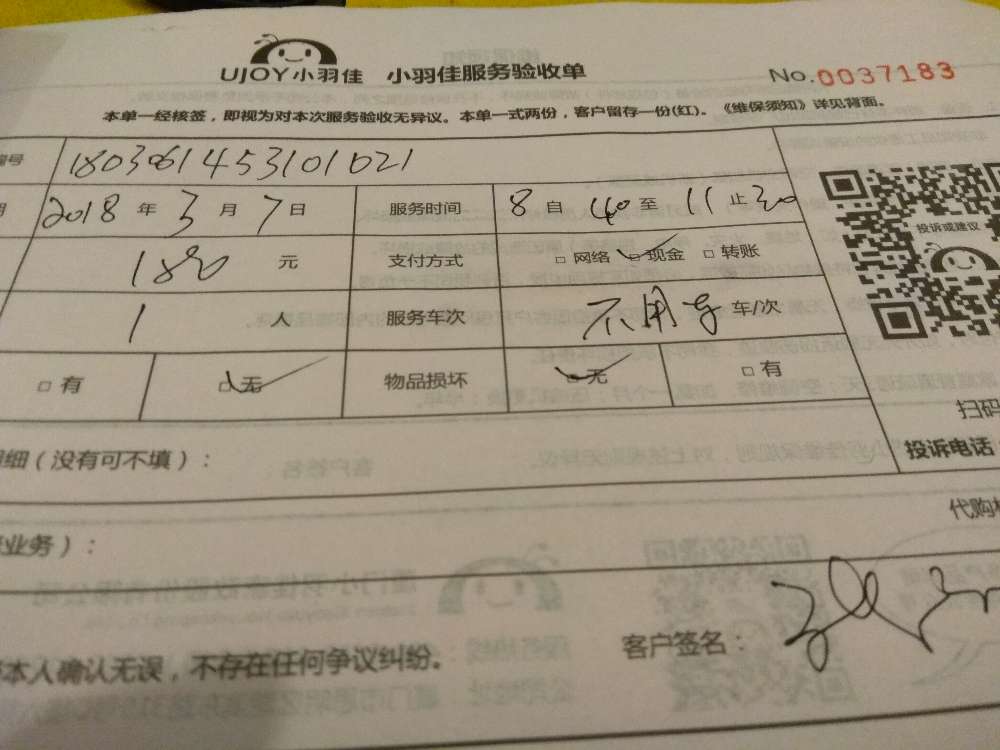 UJOY小羽佳 小羽佳服务验收单 No.0037183
本单一经核签，即视为对本次服务验收无异议。本单一式两份，客户留存一份(红)。《维保须知》详见背面。
编号 180306145310 1021
期 2018 年 3 月 7 日 服务时间 8 自 40 至 11 止 30
180 元 支付方式 □ 网络 □ 现金 □ 转账
1 人 服务车次 不用 车/次
□ 有 □ 无 物品损坏 □ 无 □ 有
投诉或建议
扫码
明细（没有可不填）： 投诉电话
代购
业务）：
本人确认无误，不存在任何争议纠纷。 客户签名：